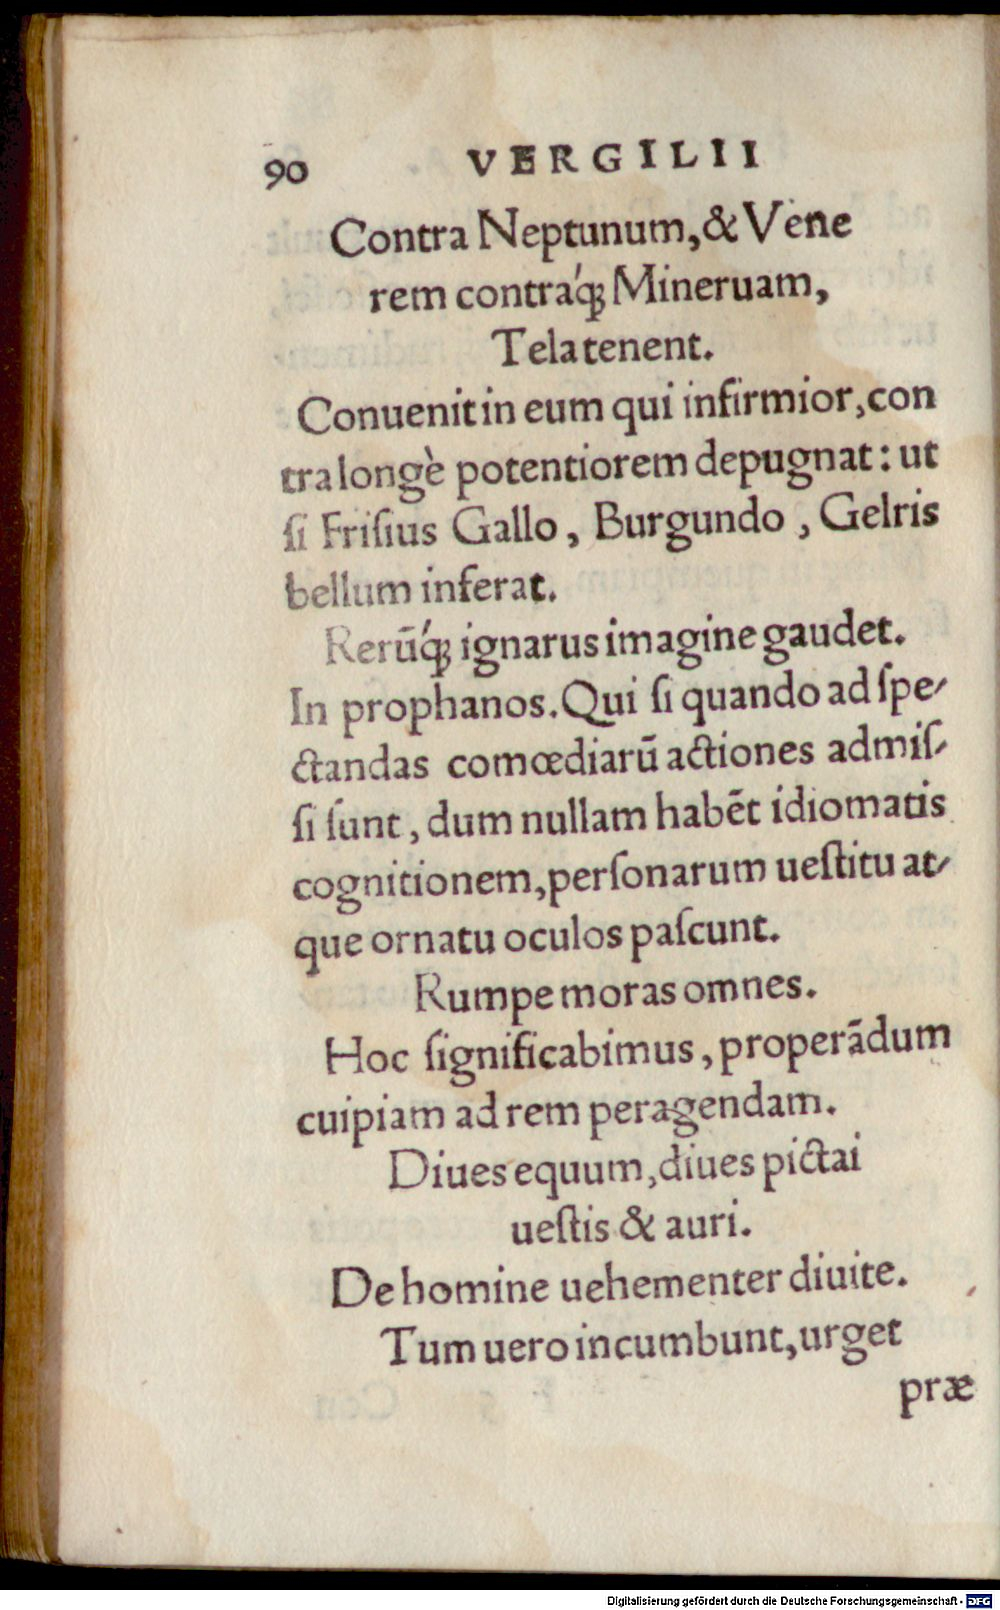 90 VERGILII
Contra Neptunum, & Vene
rem contráq; Mineruam,
Tela tenent.
Conuenit in eum qui infirmior, con
tra longè potentiorem depugnat: ut
ſi Friſius Gallo, Burgundo, Gelris
bellum inferat.
Rerū́q; ignarus imagine gaudet.
In prophanos. Qui ſi quando ad ſpe-
ctandas comœdiarū actiones admiſ-
ſi ſunt, dum nullam habēt idiomatis
cognitionem, perſonarum ueſtitu at-
que ornatu oculos paſcunt.
Rumpe moras omnes.
Hoc ſignificabimus, properādum
cuipiam ad rem peragendam.
Diues equum, diues pictai
ueſtis & auri.
De homine uehementer diuite.
Tum uero incumbunt, urget
præ
Digitalisierung gefördert durch die Deutsche Forschungsgemeinschaft - DFG